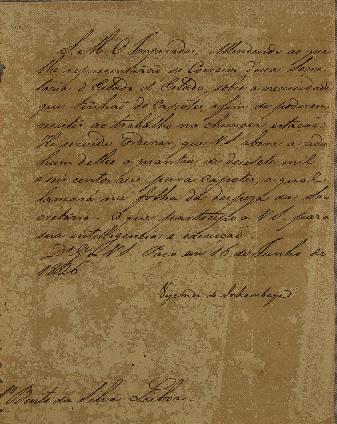 S. M. O Imperador, Attendendo ao que
lhe representárão os Correios dessa Secre
taria d'Estado, sobre a necessidade
que tinhão de Capotes afim de poderem
resistir ao trabalho na chuvosa estação
Ha por bem Ordenar, que V. S. abone a cada
hum delles a quantia de doze mil
e seis centos reis para capotes, a qual
lançará na folha da despeza da Se
cretaria. O que participo a V. S. para
sua intelligencia e execução.
D. G. a V. S. Paço em 16 de Junho de
1826
Visconde de Inhambupe
Bento da Silva Lisboa